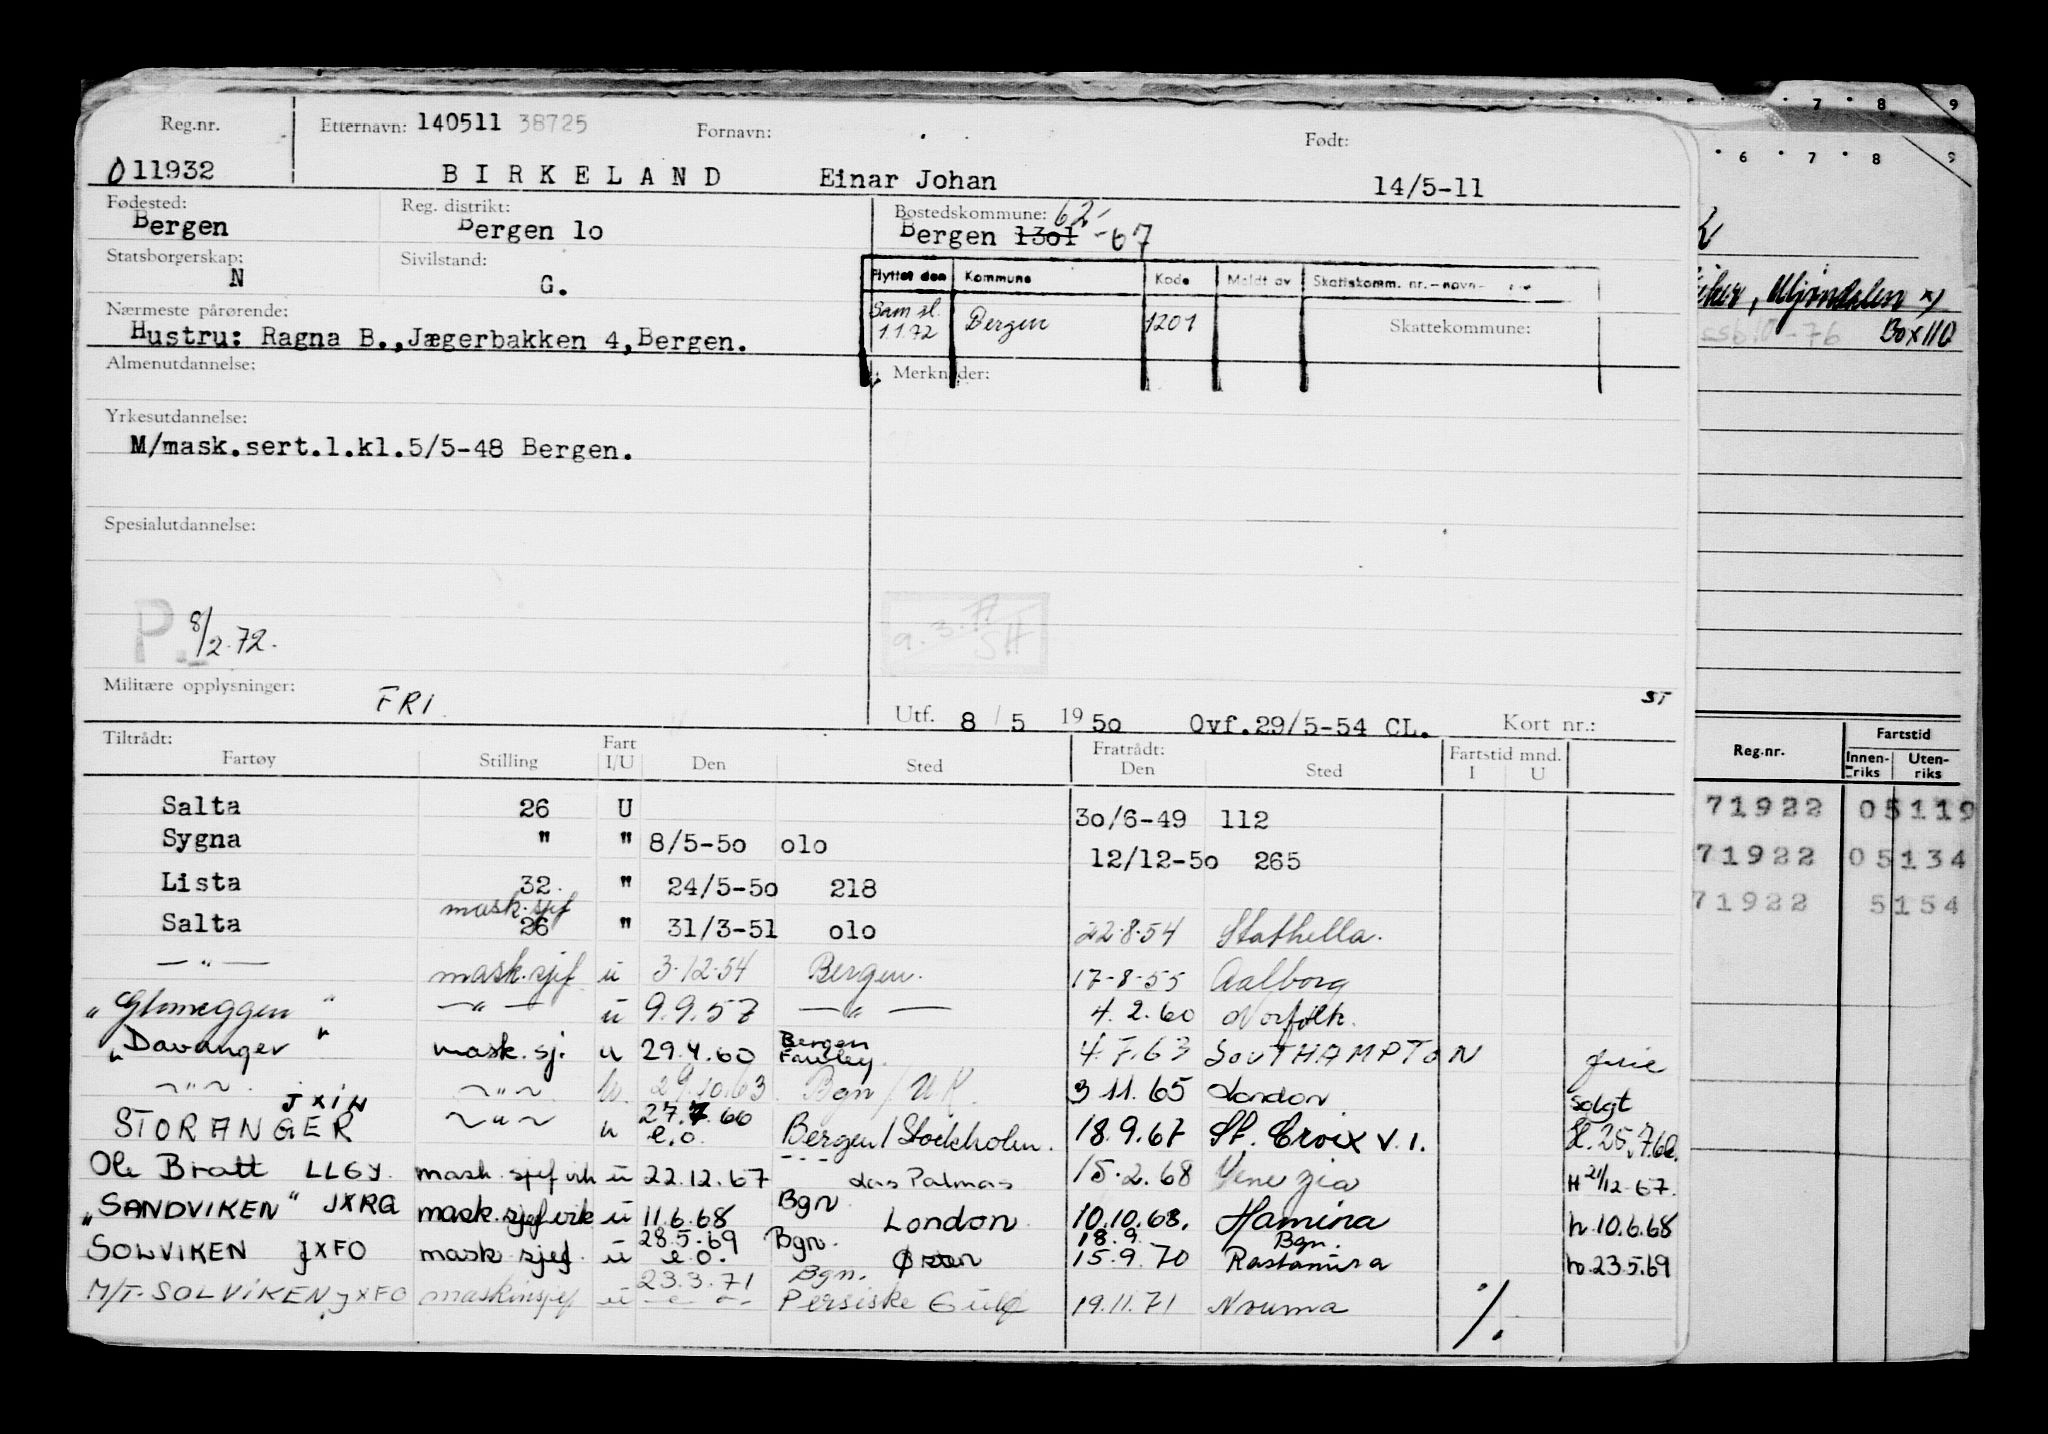 Reg.nr. Etternavn: 140511 38725 Fornavn: Født:
011932 BIRKELAND Einar Johan 14/5-11
Fødested: Reg. distrikt: Bostedskommune: 62-
Bergen Bergen 1o Bergen 1301 -67
Statsborgerskap: Sivilstand:
N G.
Flyttet den Kommune Kode Meldt av Skattskomm. nr.-navn-
Sam sl. 1.1.72 Bergen 1201
Nærmeste pårørende: Skattekommune:
Hustru: Ragna B.,Jægerbakken 4,Bergen.
Almenutdannelse: Merknader:
Yrkesutdannelse:
M/mask.sert.1.kl.5/5-48 Bergen.
Spesialutdannelse:
P. 8/2.72. 9.3.77 SH
Militære opplysninger: FRI ST
Utf. 8 / 5 19 50 Ovf.29/5-54 CL. Kort nr.:
Tiltrådt: Fart Fratrådt: Fartstid mnd.
Fartøy Stilling I/U Den Sted Den Sted I U
Salta 26 U 3o/6-49 112
Sygna " " 8/5-5o o1o 12/12-5o 265
Lista 32. " 24/5-5o 218
mask.sjef
Salta 26 " 31/3-51 o1o 22.8.54 Stathella.
— " — mask.sjef u 3.12.54 Bergen. 17-8-55 Aalborg
"Glomeggen" — " — u 9.9.57 — " — 4.2.60 Norfolk.
"Davanger" mask.sj. u 29.4.60 Bergen Fawley. 4.7.63 SOUTHAMPTON ferie
~ " ~ ~ " ~ u. 29.10.63 Bgn / UK. 3 11.65 London solgt
STORANGER JXIN ~ " ~ u 27.7.66 e.o. Bergen/Stockholm. 18.9.67 St. Croix V.I. H. 25.7.66.
Ole Bratt LLGJ mask.sjef vik u 22.12.67 Las Palmas 15.2.68 Venezia H 21/12-67.
"SANDVIKEN" JXRG mask.sjef vik u 11.6.68 Bgn London 10.10.68. Hamina h.10.6.68
SOLVIKEN JXFO mask sjef. u 28.5.69 e.o. Bgn. Østen 18.9. 15.9.70 Bgn. Rastanura h.23.5.69
M/T. SOLVIKEN JXFO maskinsjef u 23.3.71 - e - o - Bgn. Persiske Gulf 19.11.71 Nouma /.
7 8 9
6 7 8 9
Mjøndalen x)
Box 110
Reg.nr. Fartstid
Innen-riks Uten-riks
71922 05119
71922 05134
71922 5154